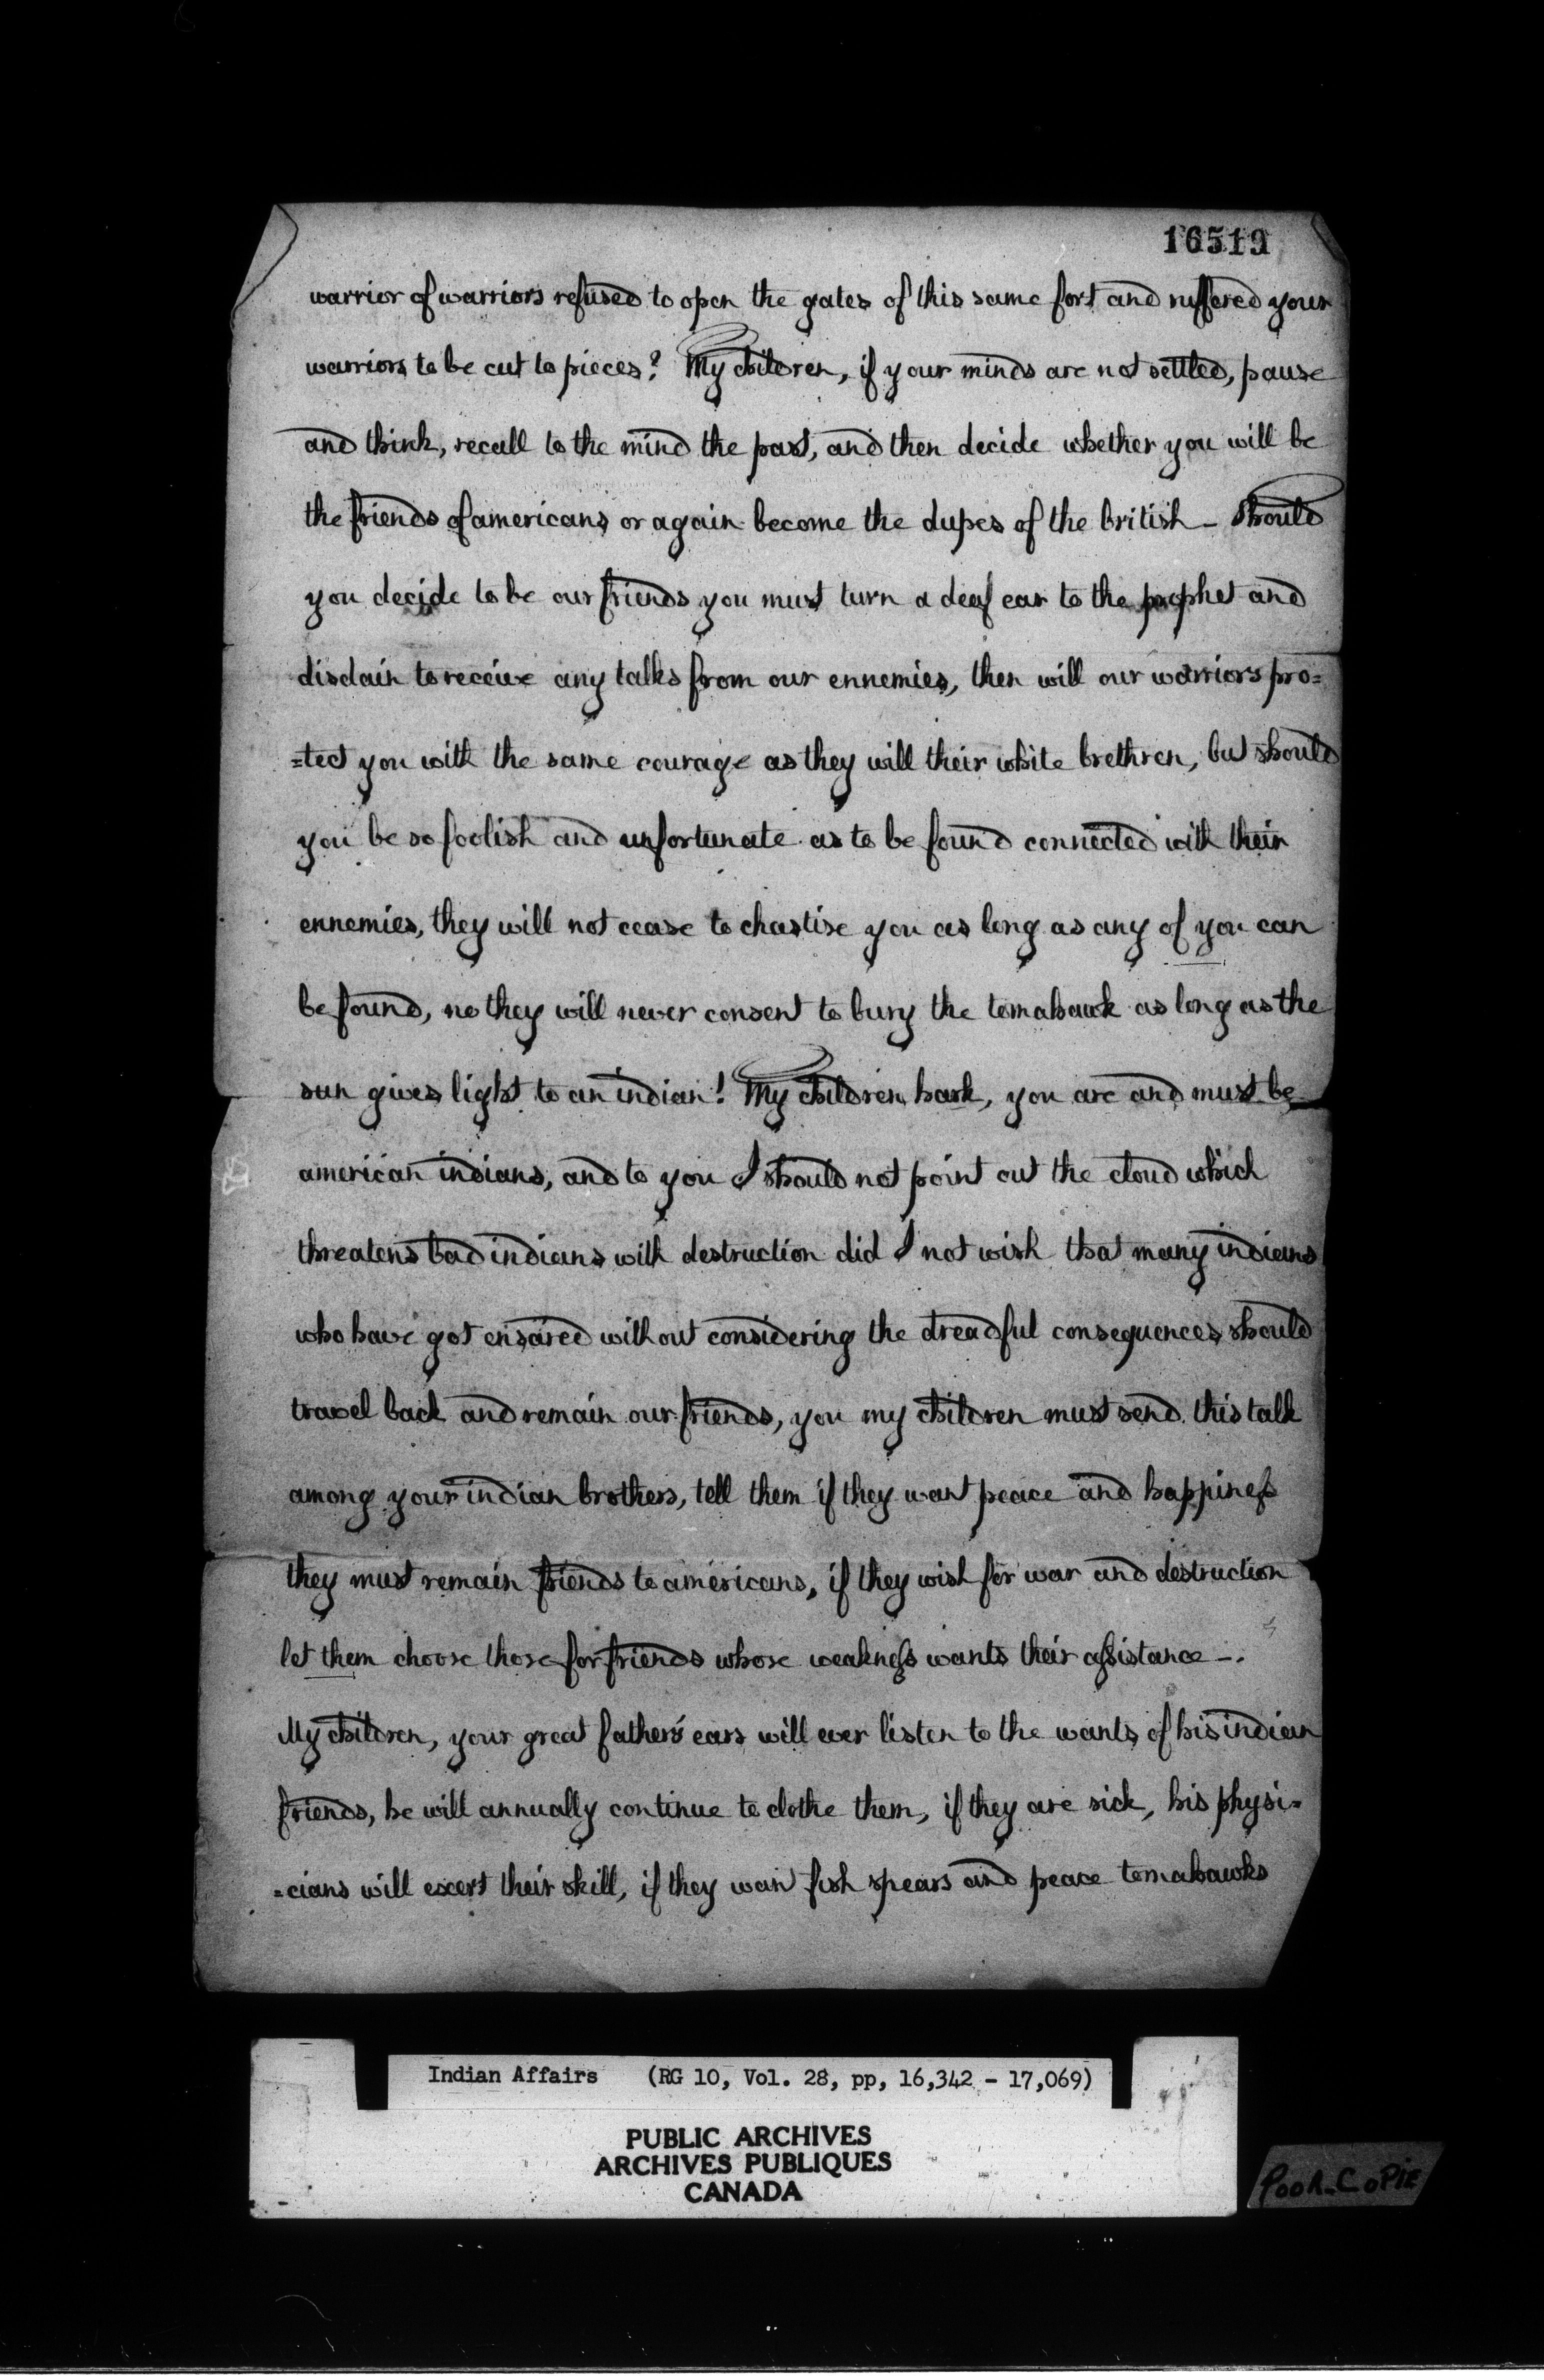 16519
warrior of warriors refused to open the gates of this same fort and suffered your
warriors to be cut to pieces? My children, if your minds are not settled, pause
and think, recall to the mind the past, and then decide whether you will be
the friends of americans or again become the dupes of the british – Should
you decide to be our friends you must turn a deaf ear to the prophet and
disdain to receive any talks from our ennemies, then will our warriors pro=
=tect you with the same courage as they will their white brethren, but should
you be so foolish and unfortunate as to be found connected with their
ennemies, they will not cease to chastise you as long as any of you can
be found, no they will never consent to bury the tomahawk as long as the
sun gives light to an indian! My children hark, you are and must be
american indians, and to you I should not point out the cloud which
threatens bad indians with destruction did I not wish that many indians
who have got ensared without considering the dreadful consequences should
travel back and remain our friends, you my children must send this talk
among your indian brothers, tell them if they want peace and happiness
they must remain friends to americans, if they wish for war and destruction
let them choose those for friends whose weakness wants their assistance –.
My children, your great father's ears will ever listen to the wants of his indian
friends, he will annually continue to clothe them, if they are sick, his physi=
=cians will exert their skill, if they wan fish spears and peace tomahawks
Indian Affairs (RG 10, Vol. 28, pp, 16,342 - 17,069)
PUBLIC ARCHIVES
ARCHIVES PUBLIQUES
CANADA
POOR COPIE